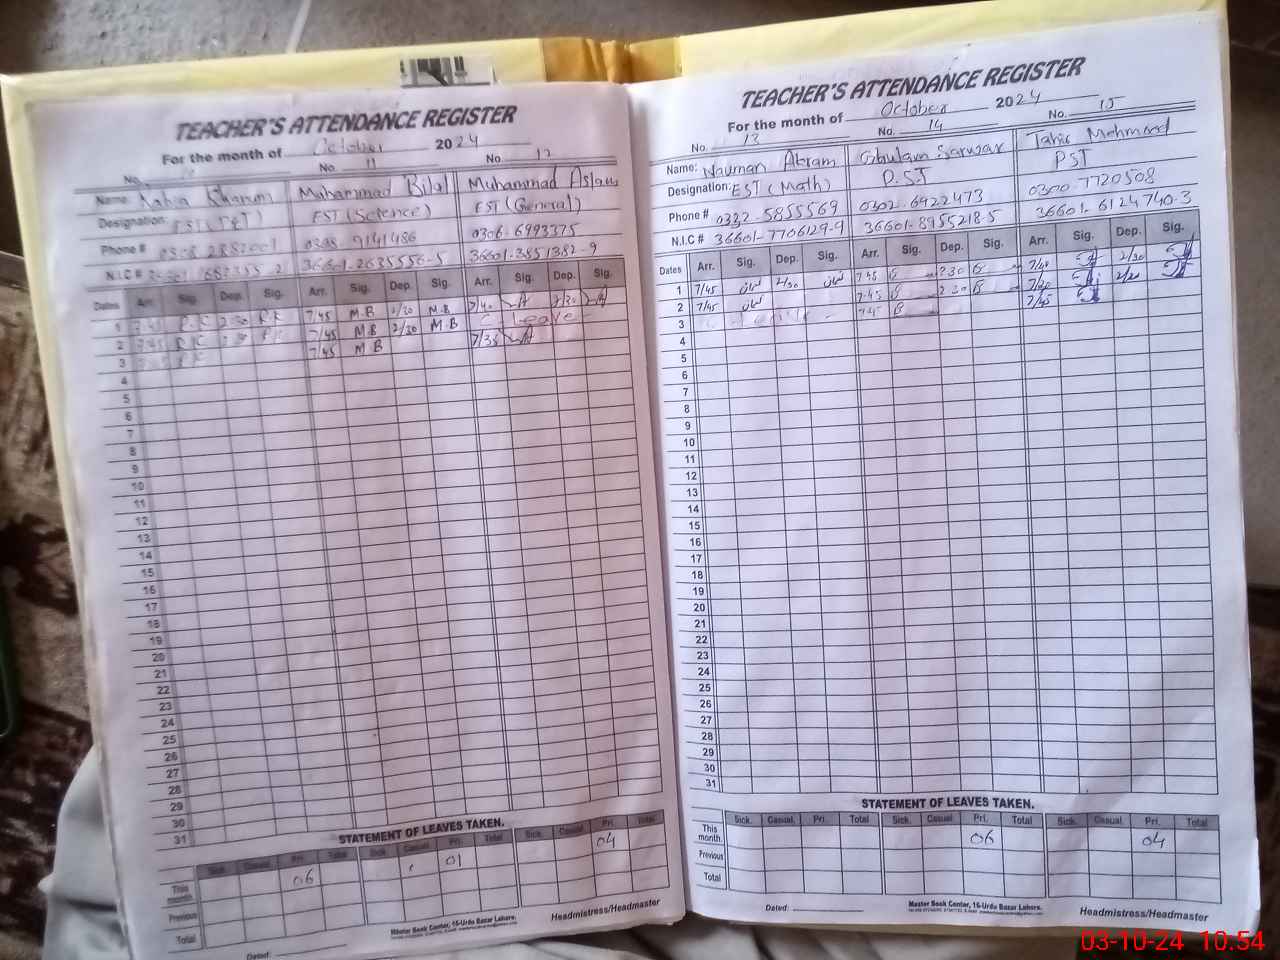 TEACHER'S ATTENDANCE REGISTER
For the month of October 2024
No. No. 11 No. 12
Name: Rabia Khanum Muhammad Bilal Muhammad Aslam
Designation: EST (Science) EST (General)
Phone # 9141486 0306.6993375
N.I.C # 36601-2635556-5 36601-3851382-9
Dates Arr. Sig. Dep. Sig. Arr. Sig. Dep. Sig. Arr. Sig. Dep. Sig.
1 7:45 R.K 2:30 R.K 7/45 M.B 2/30 M.B 7/40 2/30
2 7:45 R.K 7/45 M.B 2/30 M.B Leave
3 7/45 M.B 7/35
4
5
6
7
8
9
10
11
12
13
14
15
16
17
18
19
20
21
22
23
24
25
26
27
28
29
30
31
STATEMENT OF LEAVES TAKEN.
Sick. Casual. Pri. Total Sick. Casual. Pri. Total Sick. Casual. Pri. Total
This month 06 01 04
Previous
Total
Dated: Master Book Center, 16-Urdu Bazar Lahore. Headmistress/Headmaster
TEACHER'S ATTENDANCE REGISTER
For the month of October 2024
No. 13 No. 14 No. 15
Name: Nauman Akram Ghulam Sarwar Tahir Mehmood
Designation: EST (Math) P.S.T PST
Phone # 0332.5855569 0302.6922473 0300.7720508
N.I.C # 36601-7706129-9 36601-8955218-5 36601-6124740-3
Dates Arr. Sig. Dep. Sig. Arr. Sig. Dep. Sig. Arr. Sig. Dep. Sig.
1 7/45 2/30 7:45 2:30 2/30
2 7/45 7:45 2:30 2/30
3 7:45 7/45
4
5
6
7
8
9
10
11
12
13
14
15
16
17
18
19
20
21
22
23
24
25
26
27
28
29
30
31
STATEMENT OF LEAVES TAKEN.
Sick. Casual. Pri. Total Sick. Casual. Pri. Total Sick. Casual. Pri. Total
This month 06 04
Previous
Total
Dated: Master Book Center, 16-Urdu Bazar Lahore. Headmistress/Headmaster
03-10-24 10.54